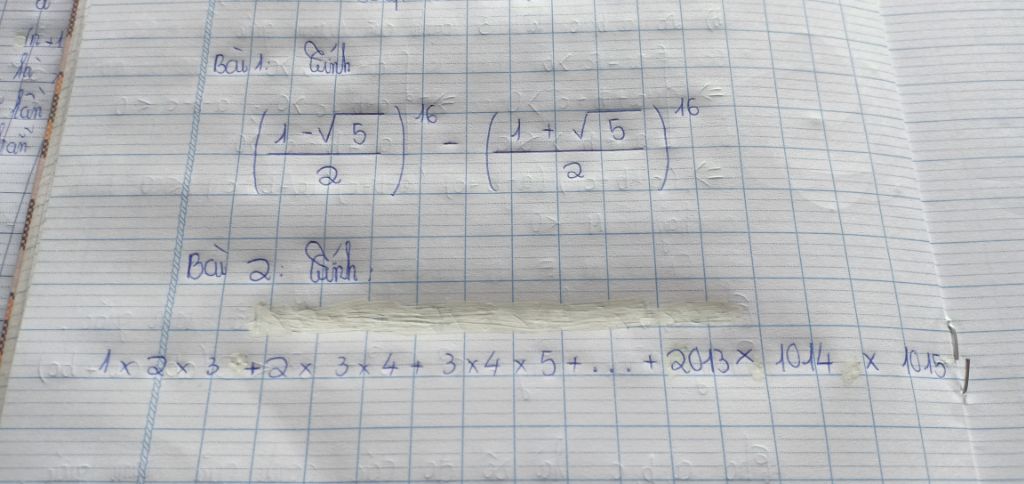 Bài 1: Tính
((1 - √5)/2)^16 - ((1 + √5)/2)^16
Bài 2: Tính:
1 x 2 x 3 + 2 x 3 x 4 + 3 x 4 x 5 + ... + 2013 x 1014 x 1015